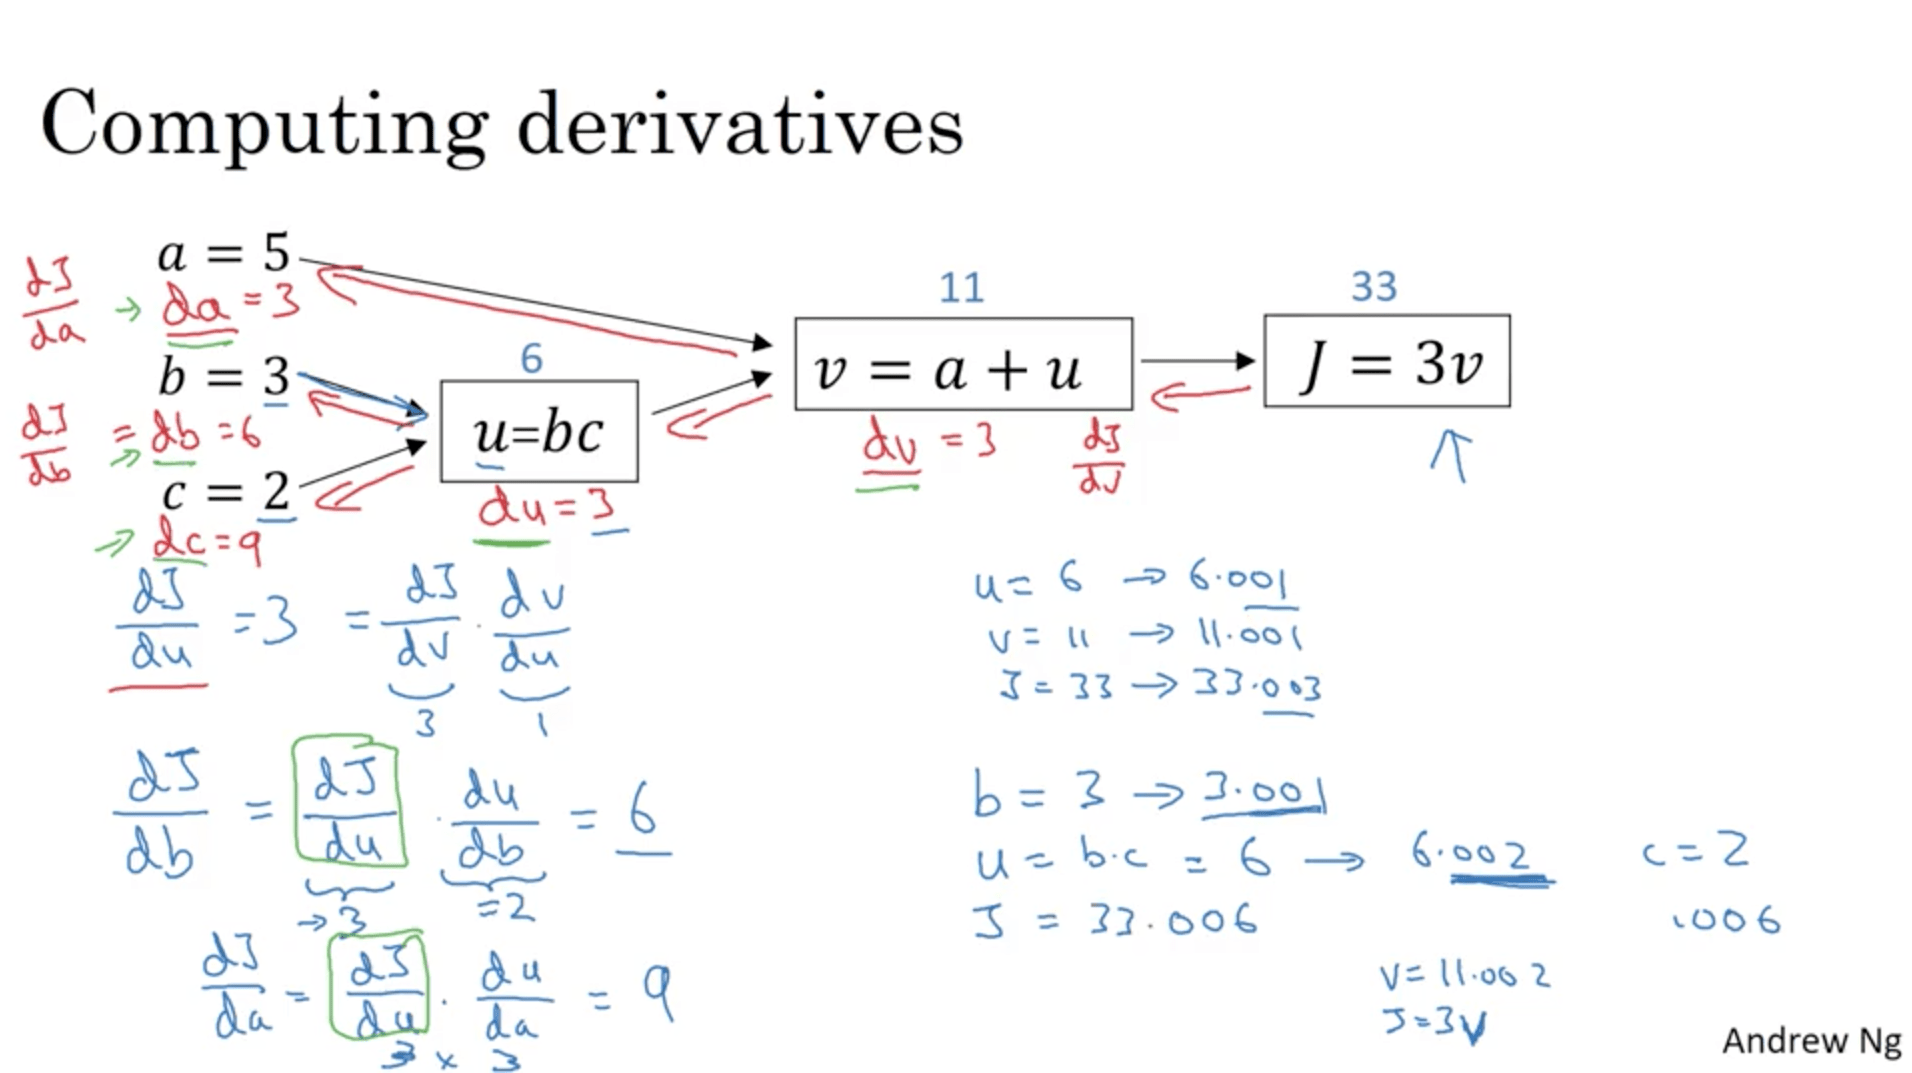 Computing derivatives
a = 5
dJ/da → da = 3
b = 3
dJ/db = → db = 6
c = 2
→ dc = 9
6
u=bc
du = 3
11
v = a + u
dv = 3 dJ/dv
33
J = 3v
dJ/du = 3 = dJ/dv · dv/du
3 1
dJ/db = dJ/du · du/db = 6
→ 3 = 2
dJ/da = dJ/du · du/da = 9
3 × 3
u = 6 → 6.001
v = 11 → 11.001
J = 33 → 33.003
b = 3 → 3.001
u = b·c = 6 → 6.002 c = 2
J = 33.006 .006
v = 11.002
J = 3v
Andrew Ng